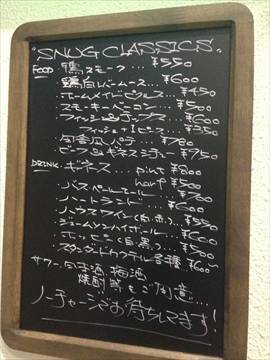 "SNUG CLASSICS"
FOOD・鴨スモーク… ¥550
・鶏白レバームース… ¥600
・ホームメイドピクルス… ¥450
・スモーキーベーコン… ¥500
・フィッシュ&チップス… ¥600
フィッシュ+1ピース… ¥350
・自家製パテ… ¥700
・ビーフ&ギネスシチュー… ¥950
DRINK・ギネス… pint ¥800
harf ¥500
・バスペールエール… ¥700
・ハートランド… ¥600
・ハウスワイン(白・赤)… ¥550
・ジェームソンハイボール… ¥600
・ホッピー(白・黒)… ¥500
・スタンダードカクテル各種 ¥600〜
サワー、果実酒、梅酒
焼酎もご用意….
ノーチャージでお待ちしてます!